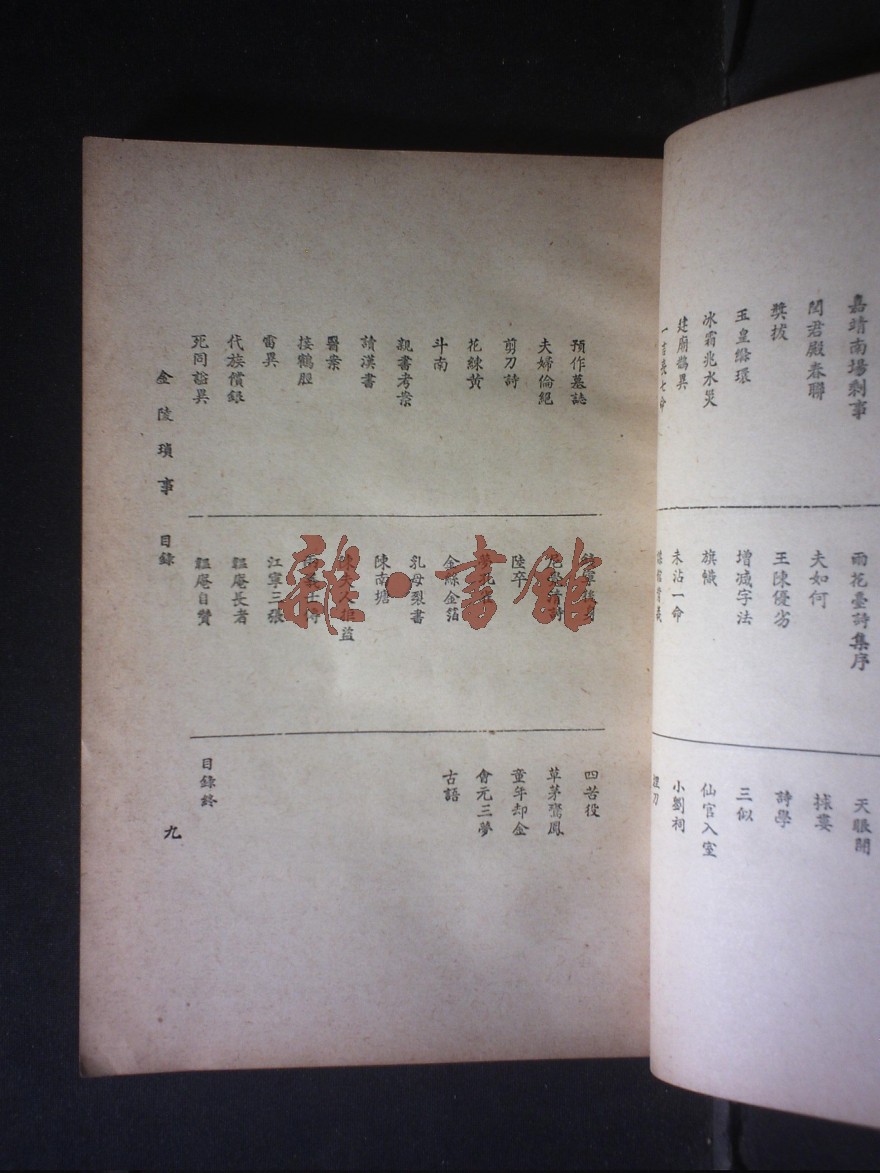 嘉靖南場剩事
閻君殿春聯
獎拔
玉皇縧環
冰霜兆水災
建廟鵲異
雨花臺詩集序
夫如何
王陳優劣
增減字法
旗幟
未沾一命
天眼開
詩學
三似
仙官入室
小劉祠
預作墓誌
夫婦倫紀
剪刀詩
花練黄
斗南
親書考案
讀漢書
醫案
接鶴脛
雷異
代族償錄
死同謚異
陸卒
金絲金箔
乳母裂書
陳南塘
江寧三張
韞庵長者
韞庵自贊
四苦役
草茅鸞鳳
童年却金
會元三夢
古語
目錄終
金陵瑣事 目錄
九
雜·書館